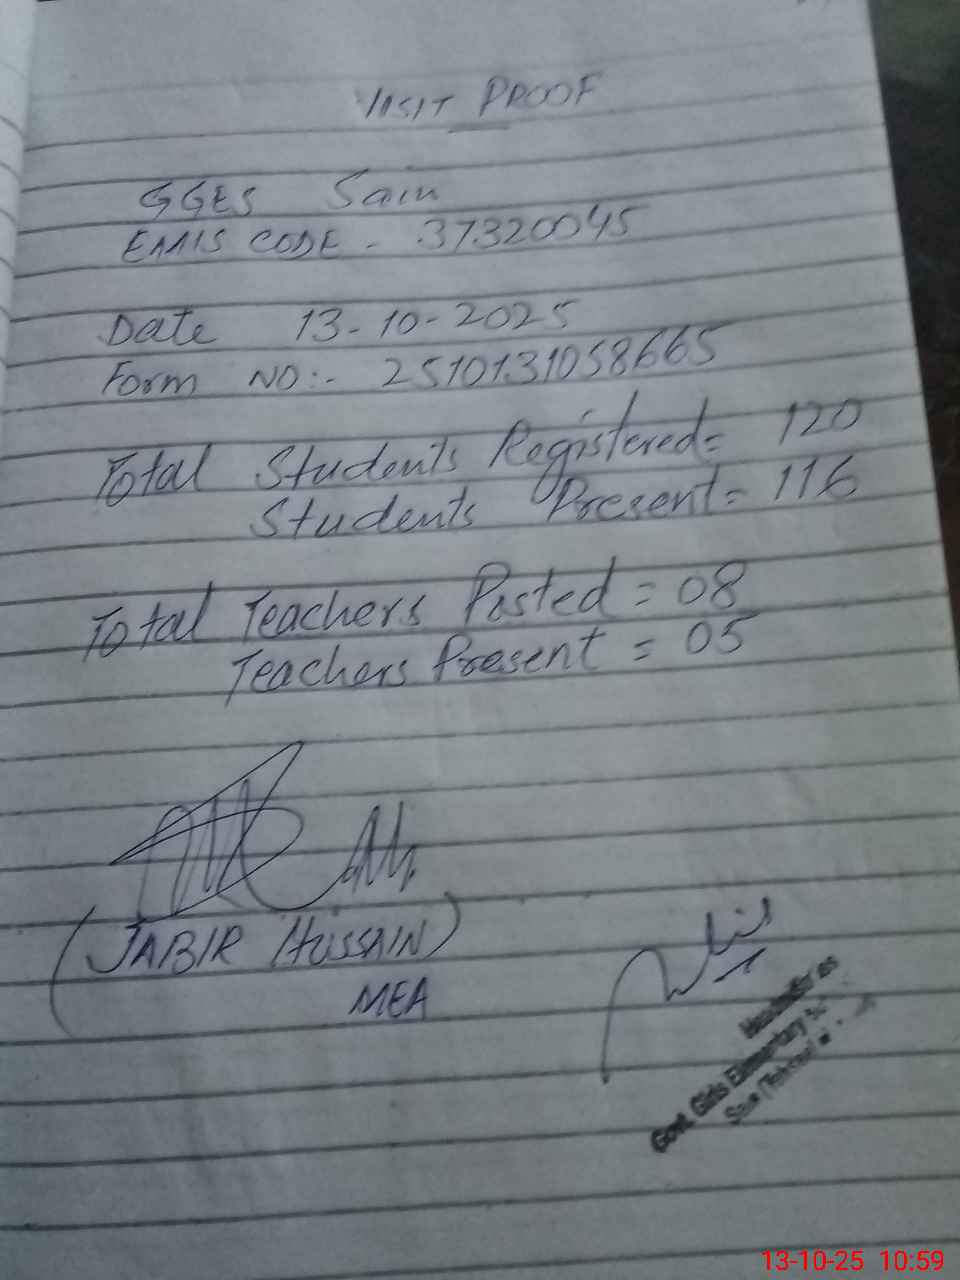 VISIT PROOF
GGES Sain
EMIS CODE - 37320045
Date 13-10-2025
Form NO:- 2510131058665
Total Students Registered= 120
Students Present= 116
Total Teachers Posted = 08
Teachers Present = 05
(JABIR HUSSAIN)
MEA
Headmistress
Govt. Girls Elementary
Sain
13-10-25 10:59